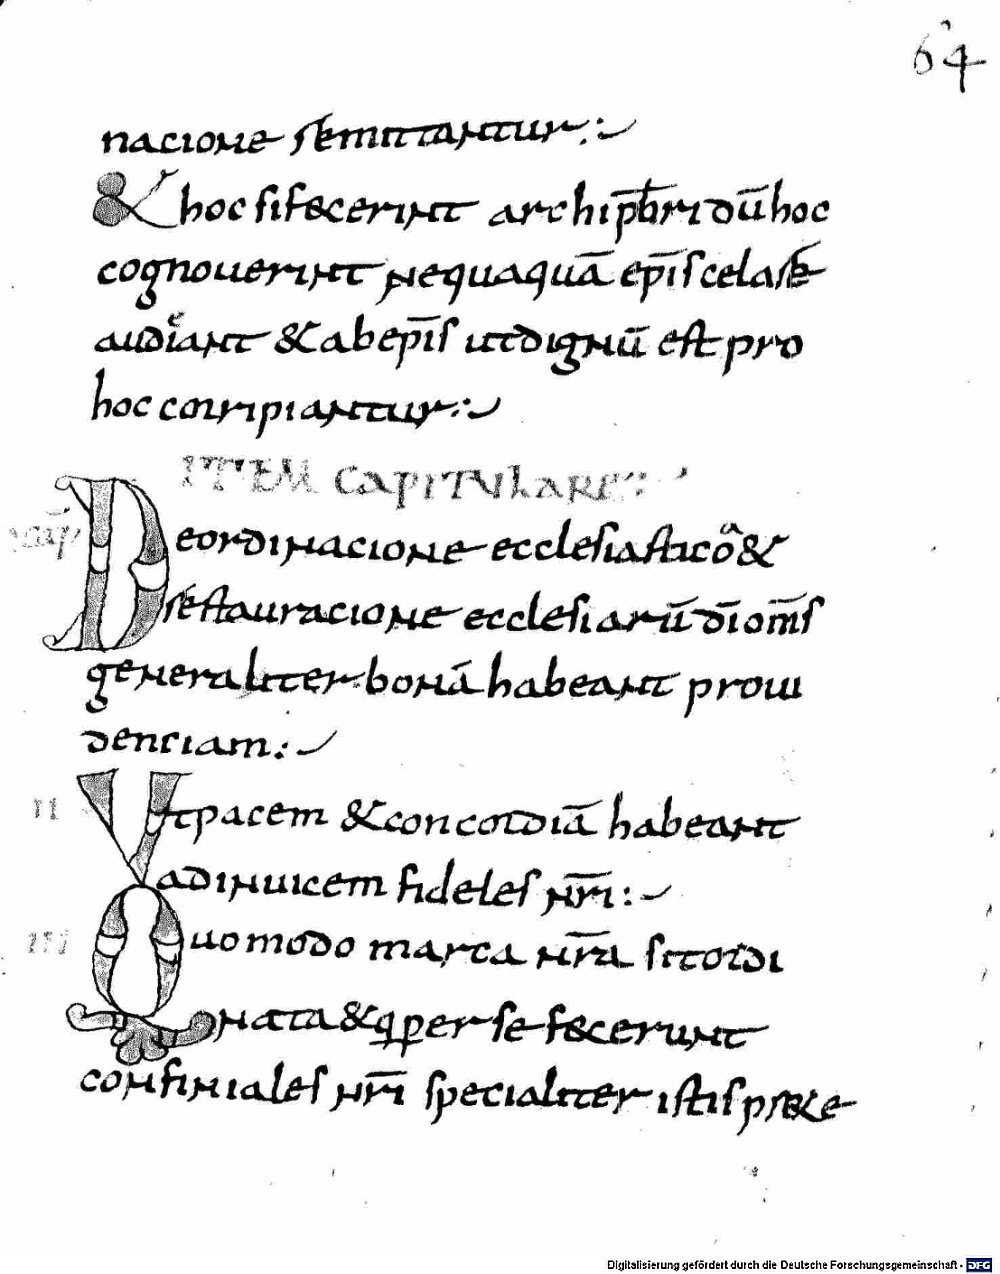 64
nacione remittantur:
& hoc si fecerint archip̄br̄i dū hoc
cognouerint nequaquā ep̄is celare
audeant & ab ep̄is ut dignū est pro
hoc corripiantur:
ITEM CAPITULARE:
cap̄
De ordinacione ecclesiastico &
restauracione ecclesiarū dī om̄s
generaliter bonā habeant proui
denciam:
II Ut pacem & concordiā habeant
ad inuicem fideles nr̄i:
III Quomodo marca nr̄a sit ordi
nata & q per se fecerunt
confiniales nr̄i specialiter istis pre
Digitalisierung gefördert durch die Deutsche Forschungsgemeinschaft - DFG